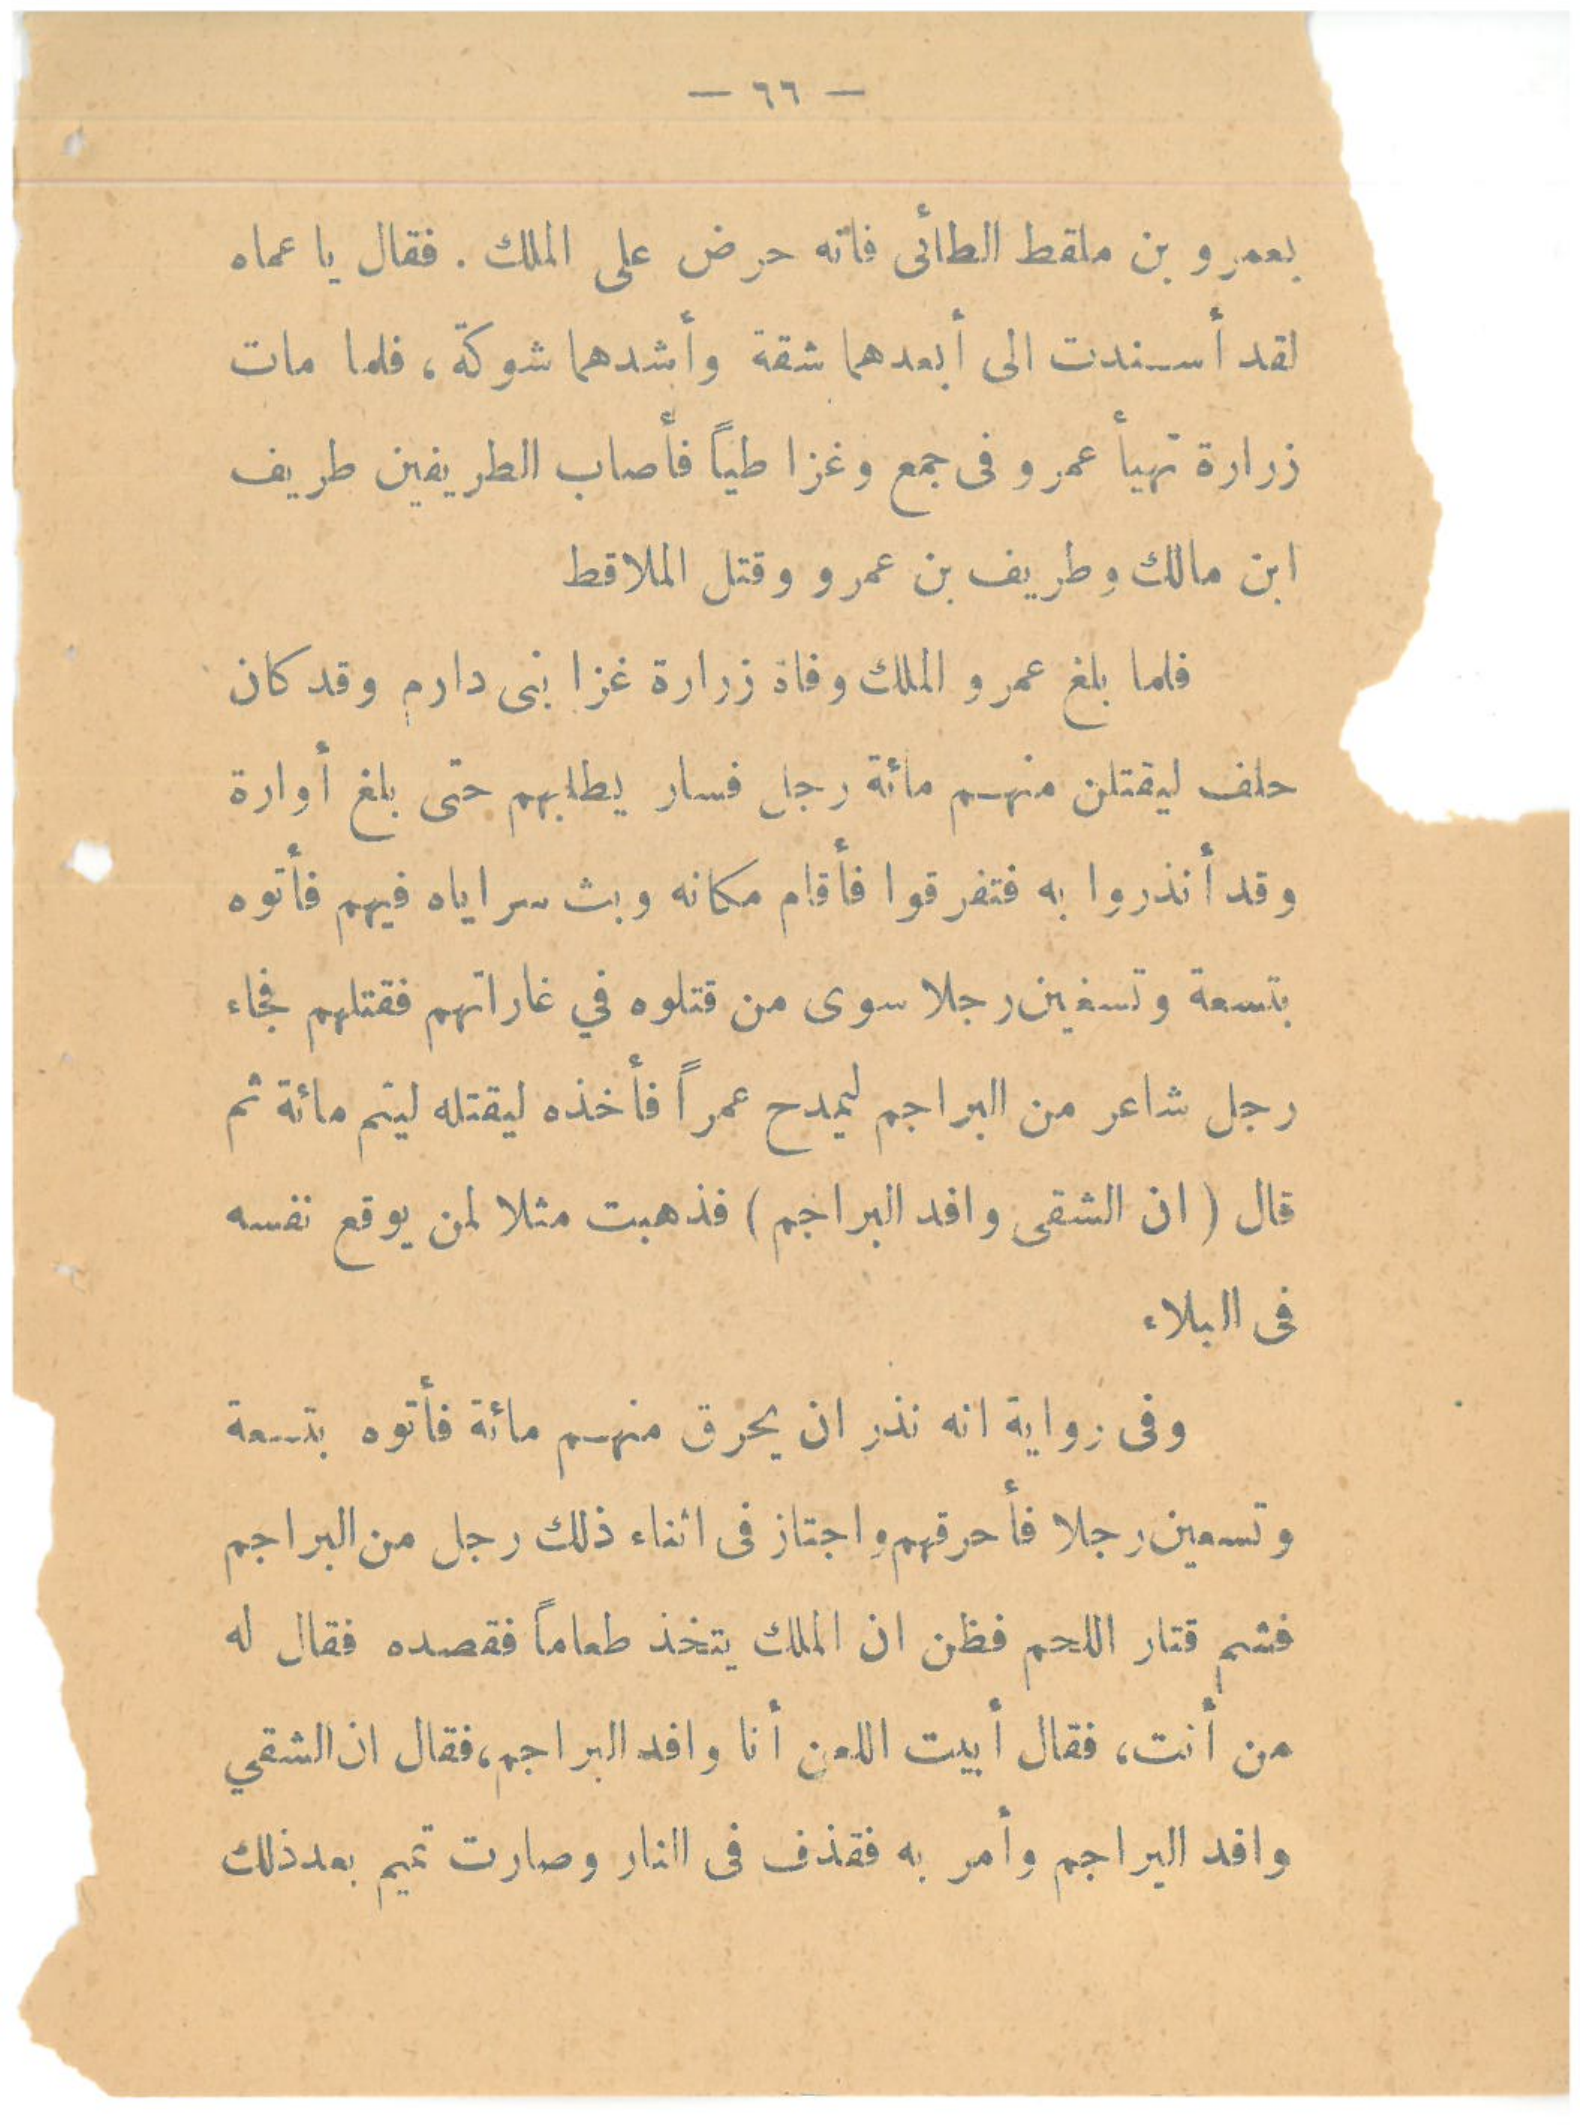 — ٦٦ —
بعمرو بن ملقط الطائى فانه حرض على الملك . فقال يا عماه
لقد أسندت الى أبعدهما شقة وأشدهما شوكة ، فلما مات
زرارة تهيأ عمرو فى جمع وغزا طياً فأصاب الطريفين طريف
ابن مالك وطريف بن عمرو وقتل الملاقط
فلما بلغ عمرو الملك وفاة زرارة غزا بنى دارم وقد كان
حلف ليقتلن منهم مائة رجل فسار يطلبهم حتى بلغ أوارة
وقد أنذروا به فتفرقوا فأقام مكانه وبث سراياه فيهم فأتوه
بتسعة وتسعين رجلا سوى من قتلوه في غاراتهم فقتلهم فجاء
رجل شاعر من البراجم ليمدح عمراً فأخذه ليقتله ليتم مائة ثم
قال ( ان الشقى وافد البراجم ) فذهبت مثلا لمن يوقع نفسه
فى البلاء
وفى رواية انه نذر ان يحرق منهم مائة فأتوه بتسعة
وتسعين رجلا فأحرقهم واجتاز فى اثناء ذلك رجل من البراجم
فشم قتار اللحم فظن ان الملك يتخذ طعاماً فقصده فقال له
من أنت، فقال أبيت اللعن أنا وافد البراجم، فقال ان الشقي
وافد البراجم وأمر به فقذف فى النار وصارت تميم بعد ذلك